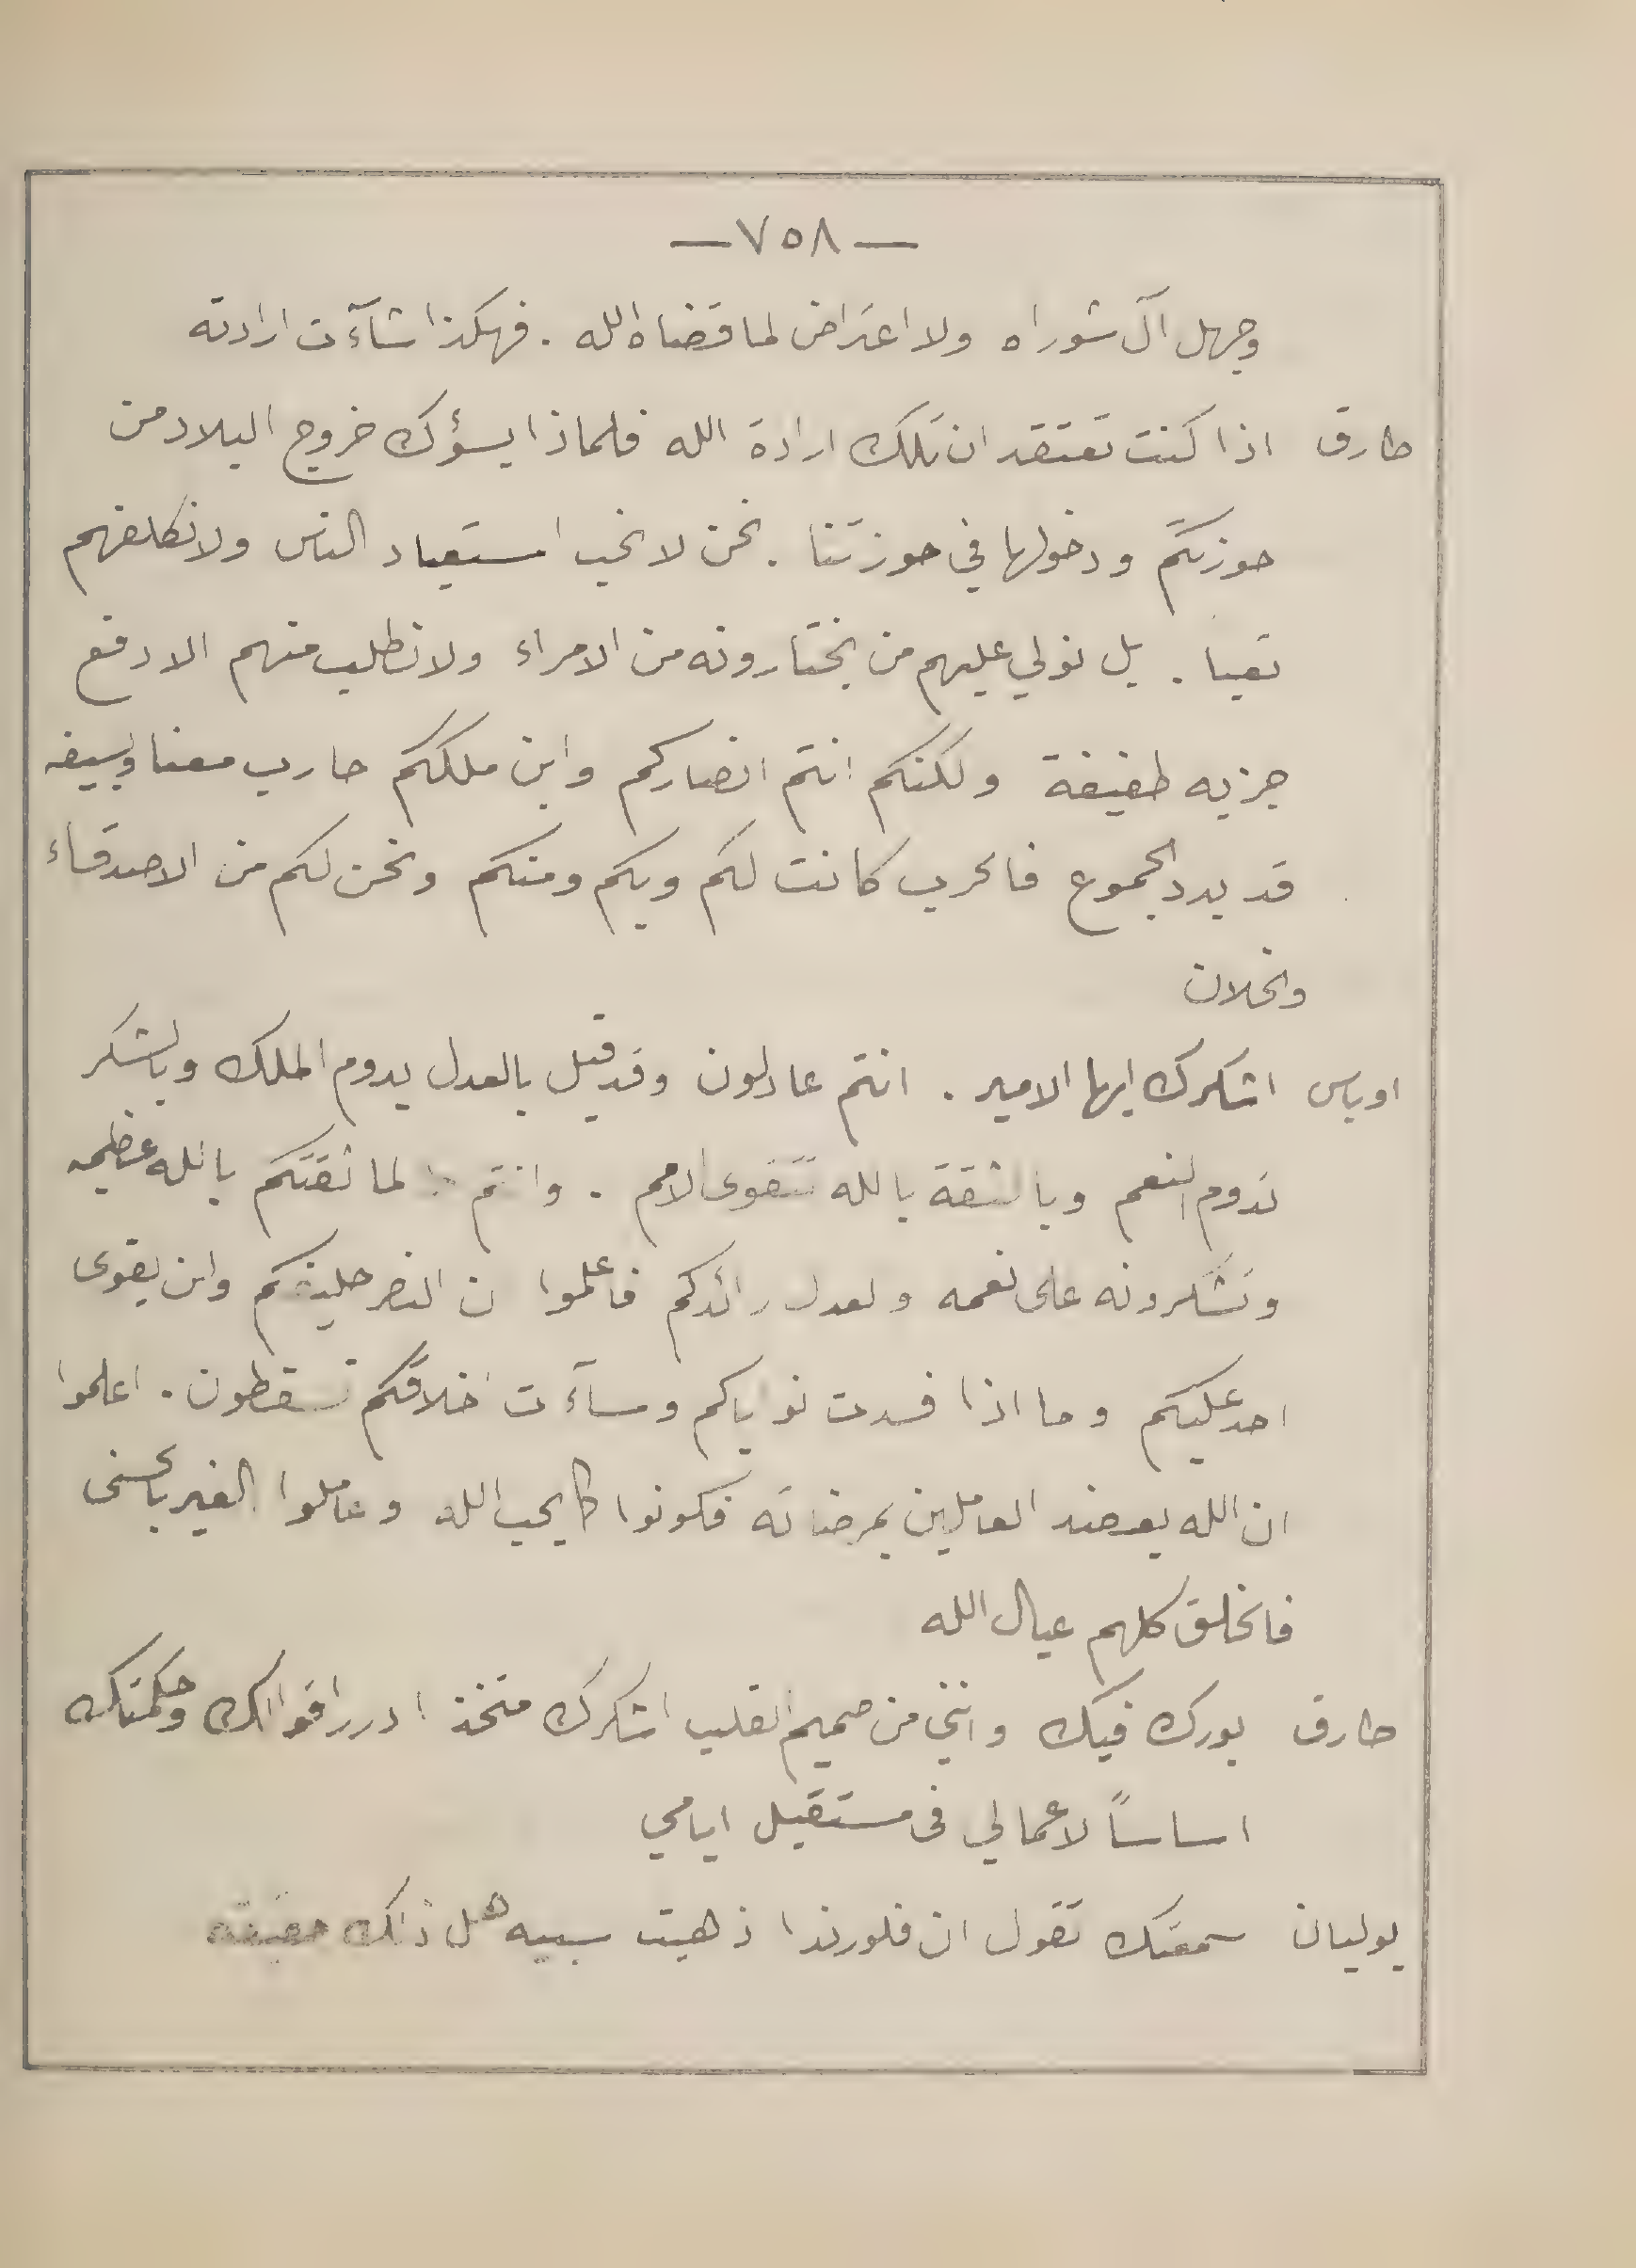 — ٧٥٨ —
وجهل آل شوراه ولا اعتراض لما قضاه الله . فهكذا شآءت ارادته
طارق اذا كنت تعتقد ان تلك ارادة الله فلماذا يسؤك خروج البلاد من
حوزتكم ودخولها في حوزتنا . نحن لا نحب استعباد الناس ولا نكلفهم
تعبا . بل نولي عليهم من يختارونه من الامراء ولا نطلب منهم الا دفع
جزيه طفيفة ولكنكم انتم انصاركم وابن ملككم حارب معنا وبسيفه
قد بدد الجموع فالحرب كانت لكم وبكم ومنكم ونحن لكم من الاصدقاء
والخلان
اوباس اشكرك ايها الامير . انتم عادلون وقد قيل بالعدل يدوم الملك وبالشكر
تدوم النعم وبالثقة بالله تتقوى الامم . وانتم لما ثقتكم بالله عظيمه
وتشكرونه على نعمه ولعدل رائدكم فاعلموا ن النصر حليفكم ولن يقوى
احد عليكم وما اذا فسدت نواياكم وسآءت اخلاقكم تسقطون . اعلموا
ان الله يعضد العاملين بمرضاته فكونوا كما يحب الله وعاملوا الغير بالحسنى
فالخلق كلهم عيال الله
طارق بورك فيك وانني من صميم القلب اشكرك متخذا درر اقوالك وحكمتك
اساساً لاعمالي فى مستقبل ايامي
يوليان سمعتك تقول ان فلورندا ذهبت سبيه هل ذلك حقيقه